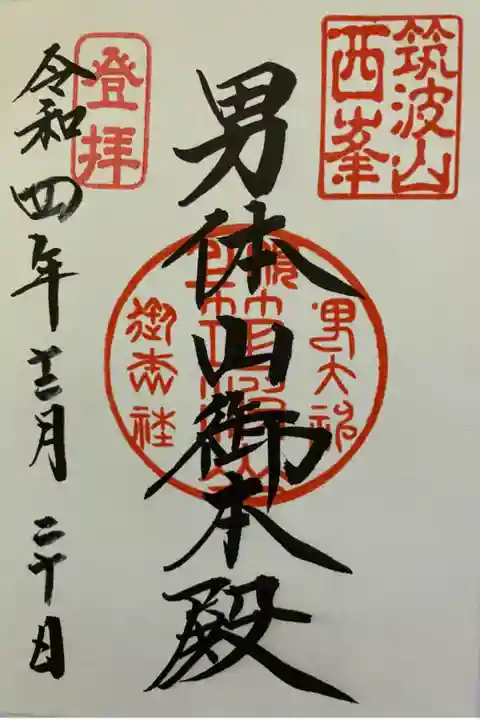 筑波山
西峯
男体山御本殿
男大神
御本社
登拝
令和四年十二月二十日